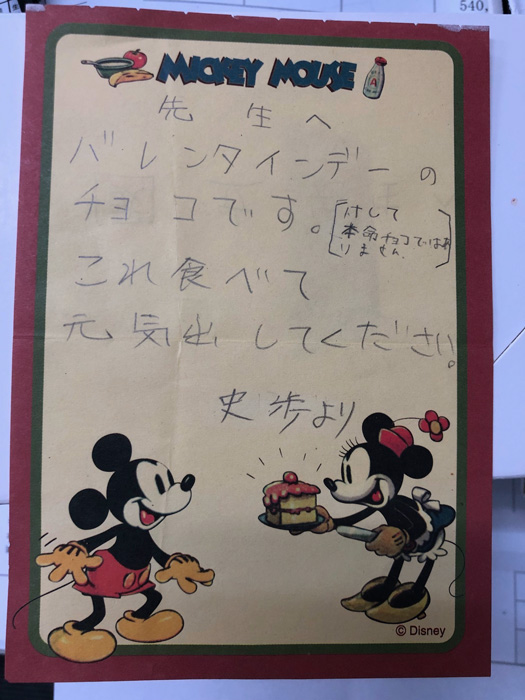 540,
MICKEY MOUSE
先生へ
バレンタインデーの
チョコです。
[けして
本命チョコではあ
りません]
これ食べて
元気出してください。
史歩より
© Disney